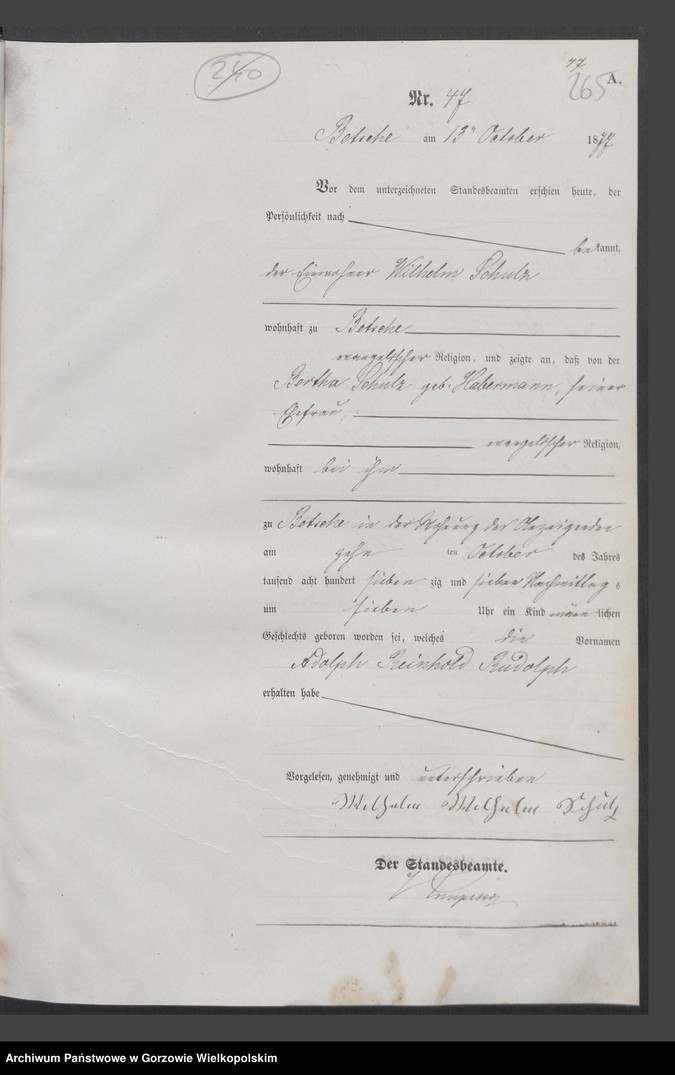 240
47.
265
A.
Nr. 47
Betsche am 13n October 1877
Vor dem unterzeichneten Standesbeamten erschien heute, der
Persönlichkeit nach
bekannt,
der Einwohner Wilhelm Schulz
wohnhaft zu Betsche
evangelischer Religion, und zeigte an, daß von der
Bertha Schulz geb. Habermann, seiner
Ehefrau,
evangelischer Religion,
wohnhaft bei ihm
zu Betsche in der Wohnung des Anzeigenden
am zehn ten October des Jahres
tausend acht hundert sieben zig und sieben Nachmittag s
um sieben Uhr ein Kind männ lichen
Geschlechts geboren worden sei, welches die Vornamen
Adolph Reinhold Rudolph
erhalten habe
Vorgelesen, genehmigt und unterschrieben
Wilhelm Wilhelm Schulz
Der Standesbeamte.
Archiwum Państwowe w Gorzowie Wielkopolskim